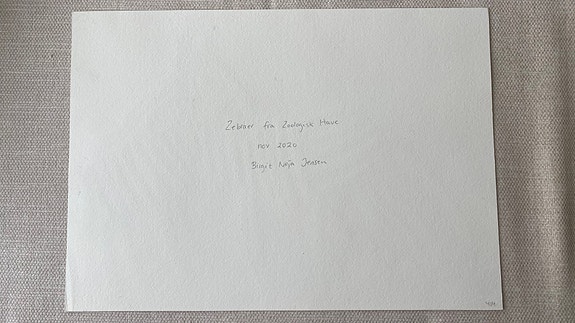 Zebraer fra Zoologisk Have
nov 2020
Birgit Jensen